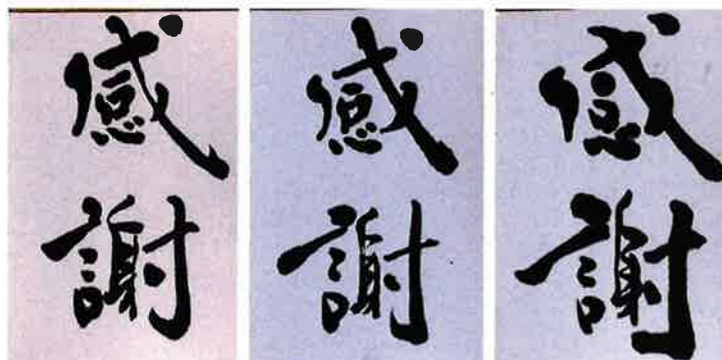 感謝
感謝
感謝